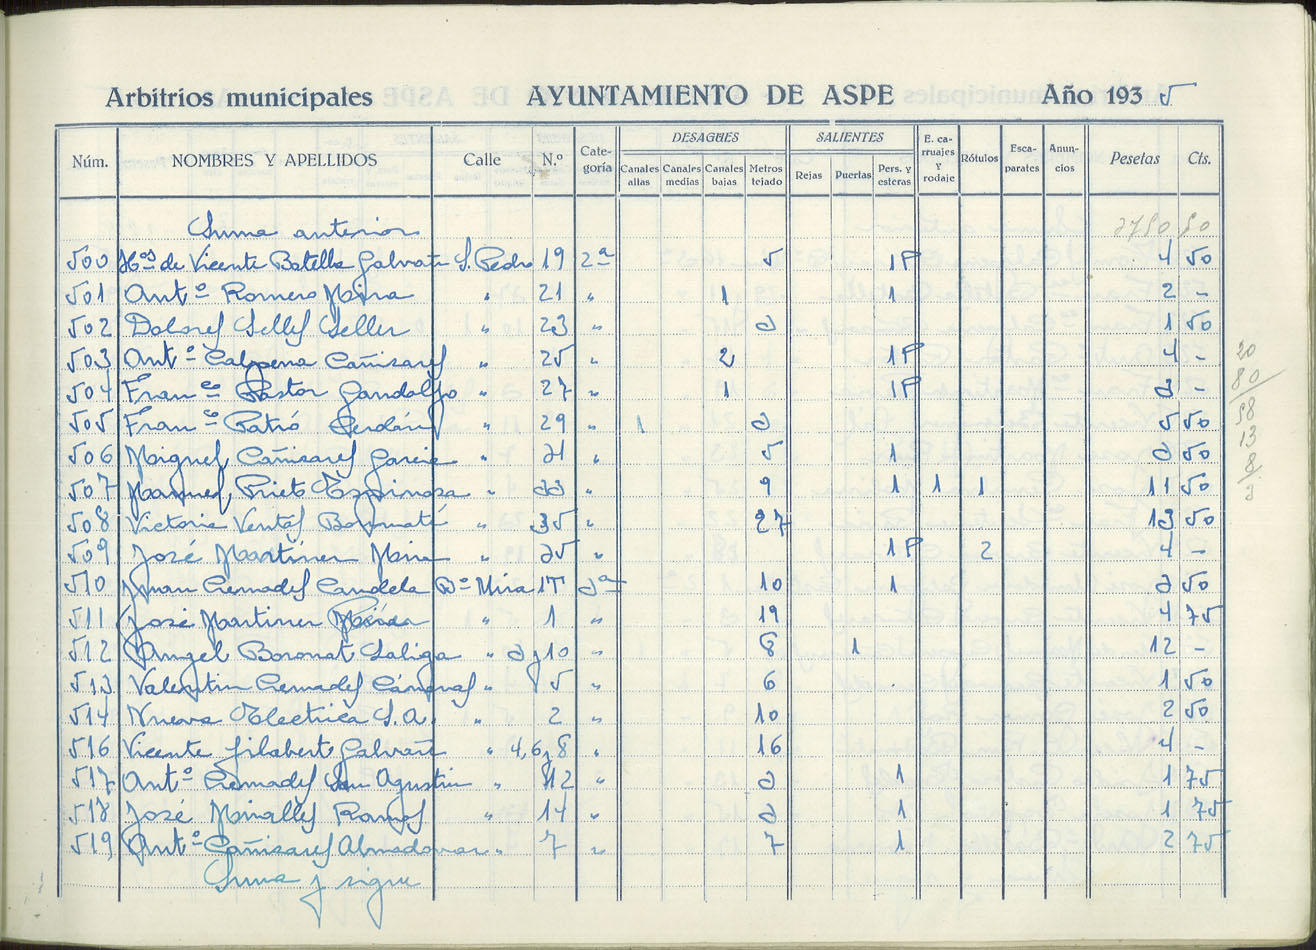 Arbitrios municipales AYUNTAMIENTO DE ASPE Año 1935
Núm. NOMBRES Y APELLIDOS Calle N.º Cate-goría DESAGÜES Canales altas Canales medias Canales bajas Metros tejado SALIENTES Rejas Puertas Pers. y esteras E. ca-rruajes y rodaje Rótulos Esca-parates Anun-cios Pesetas Cts.
Suma anterior 2750 50
500 Hºs de Vicente Botella Galvañ S. Pedro 19 2ª 5 1P 4 50
501 Antº Romero Mira " 21 " 1 1 2 -
502 Dolores Selles Seller " 23 " 3 1 50
503 Antº Calpena Cañizares " 25 " 2 1P 4 -
504 Franco Pastor Gandolfo " 27 " 1 1P 3 -
505 Franco Patró Cerdán " 29 " 1 3 5 50
506 Miguel Cañizares Garcia " 31 " 5 1 3 50
507 Manuel Prieto Espinosa " 33 " 9 1 1 1 11 50
508 Victoria Ventos Boronat " 35 " 27 13 50
509 José Martinez Mira " 35 " 1P 2 4 -
510 Juan Cremades Candela Dº Mira 17 3ª 10 1 3 50
511 José Martinez " 1 " 19 4 75
512 Angel Boronat Galiga " 3 y 10 " 8 1 12 -
513 Valentin Cremades Cánovas " 5 " 6 1 50
514 Nueva Electrica S.A. " 2 " 10 2 50
516 Vicente Gilabert Galvañ " 4,6 y 8 " 16 4 -
517 Antº Cremades San Agustin " 12 " 3 1 1 75
518 José Miralles Ramos " 14 " 3 1 1 75
519 Antº Cañizares Almodovar " 7 " 7 1 2 75
Suma y sigue
20
80
58
13
8
3